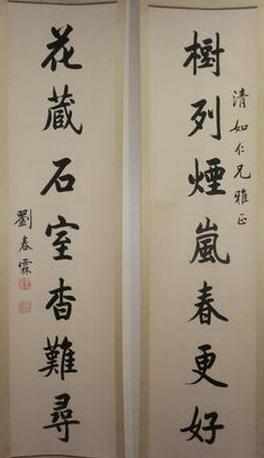 樹列煙嵐春更好
清如仁兄雅正
花藏石室杳難尋
劉春霖